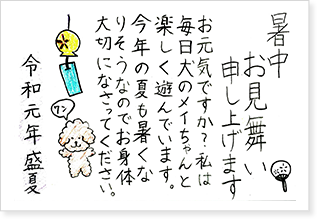 暑中
お見舞い
申し上げます
お元気ですか?私は
毎日犬のメイちゃんと
楽しく遊んでいます。
今年の夏も暑くな
りそうなのでお身体
大切になさってください。
ワン
令和元年盛夏